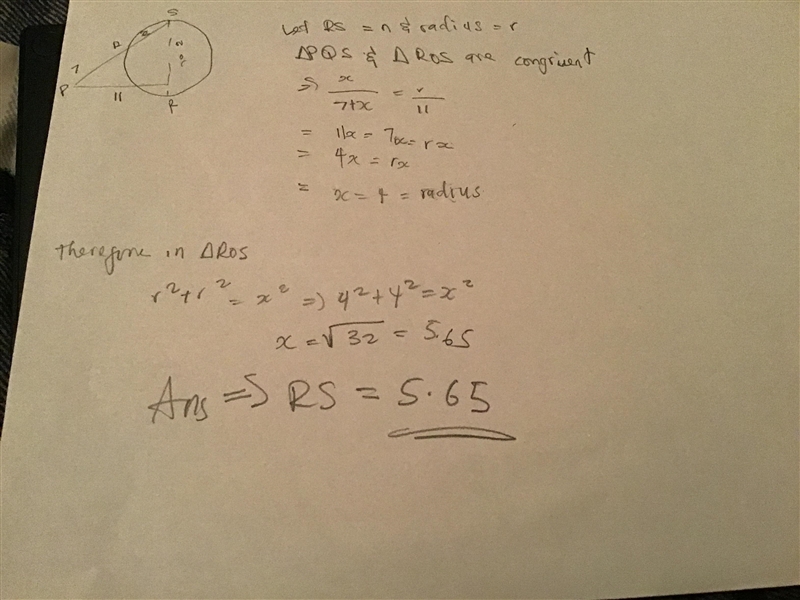 S
R
7
P
11
r
Let RS = n & radius = r
ΔPQS & ΔROS are congruent
⇒ x/7+x = r/11
= 11x = 7x = rx
= 4x = rx
= x = 4 = radius
Therefore in ΔROS
r² + r² = x² ⇒ 4² + 4² = x²
x = √32 = 5.65
Ans ⇒ RS = 5.65